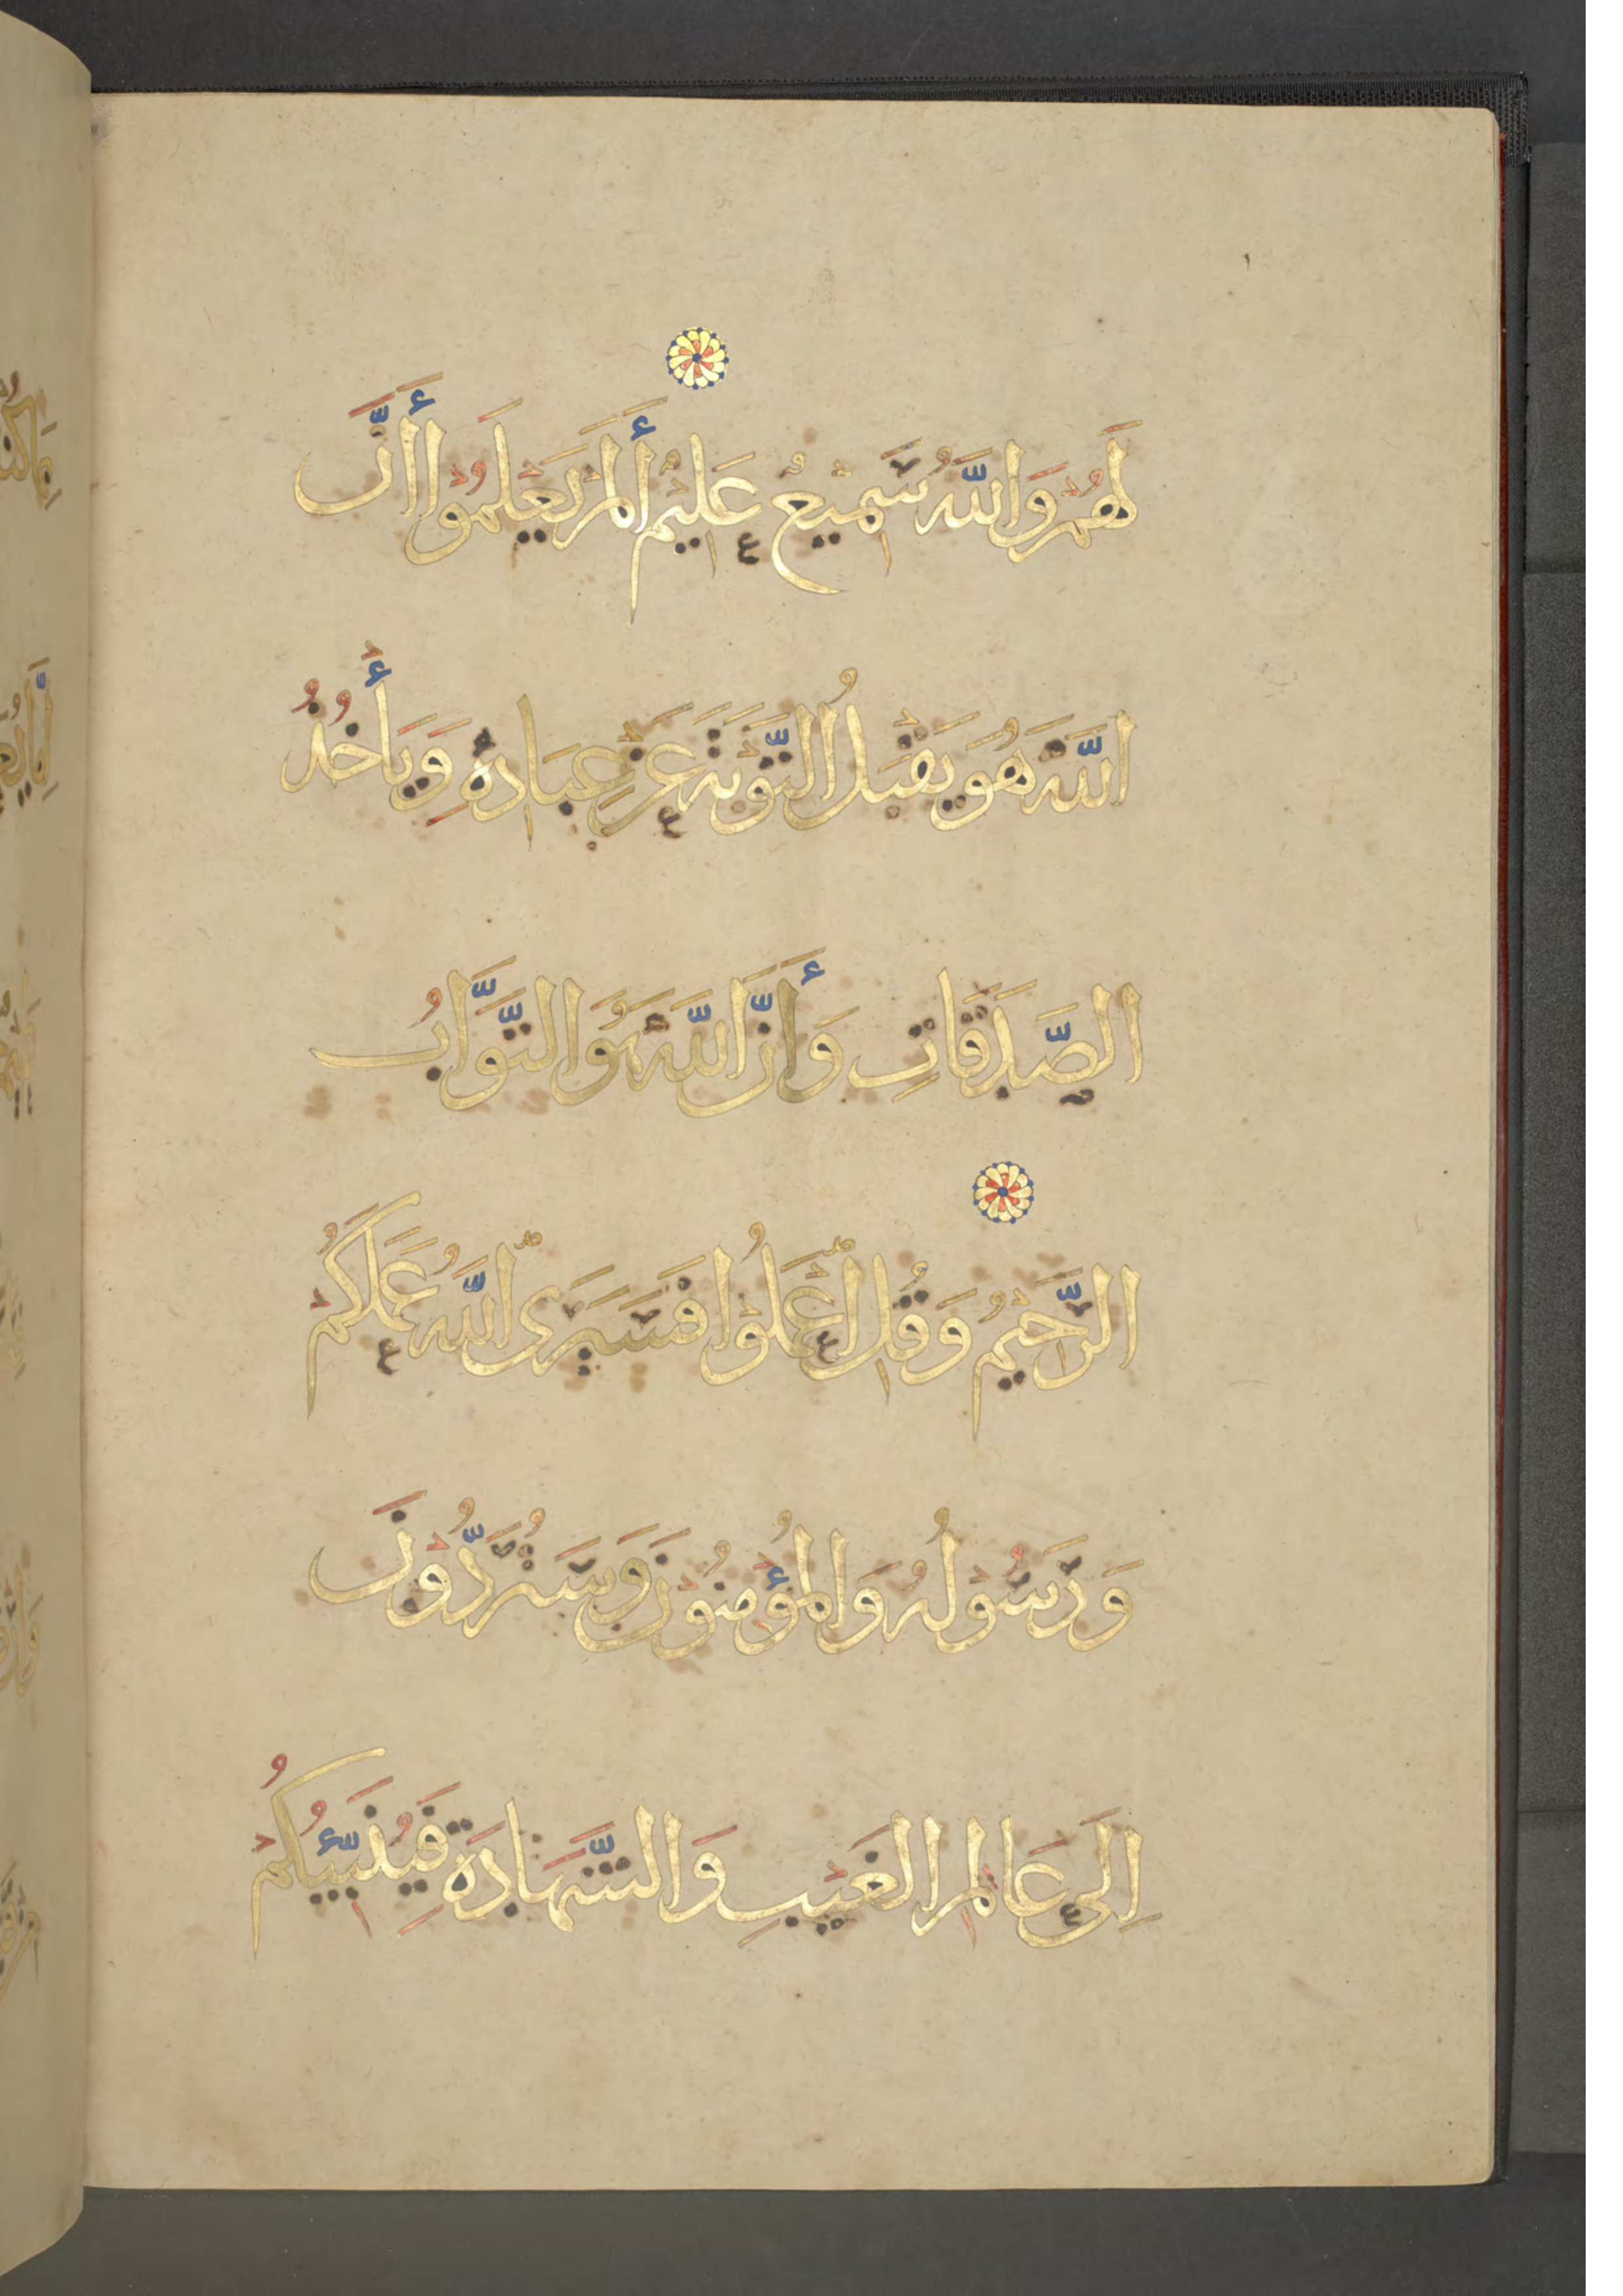 لَهُمْ وَاللَّهُ سَمِيعٌ عَلِيمٌ أَلَمْ يَعْلَمُوا أَنَّ
اللَّهَ هُوَ يَقْبَلُ التَّوْبَةَ عَنْ عِبَادِهِ وَيَأْخُذُ
الصَّدَقَاتِ وَأَنَّ اللَّهَ هُوَ التَّوَّابُ
الرَّحِيمُ وَقُلِ اعْمَلُوا فَسَيَرَى اللَّهُ عَمَلَكُمْ
وَرَسُولُهُ وَالْمُؤْمِنُونَ وَسَتُرَدُّونَ
إِلَى عَالِمِ الْغَيْبِ وَالشَّهَادَةِ فَيُنَبِّئُكُمْ